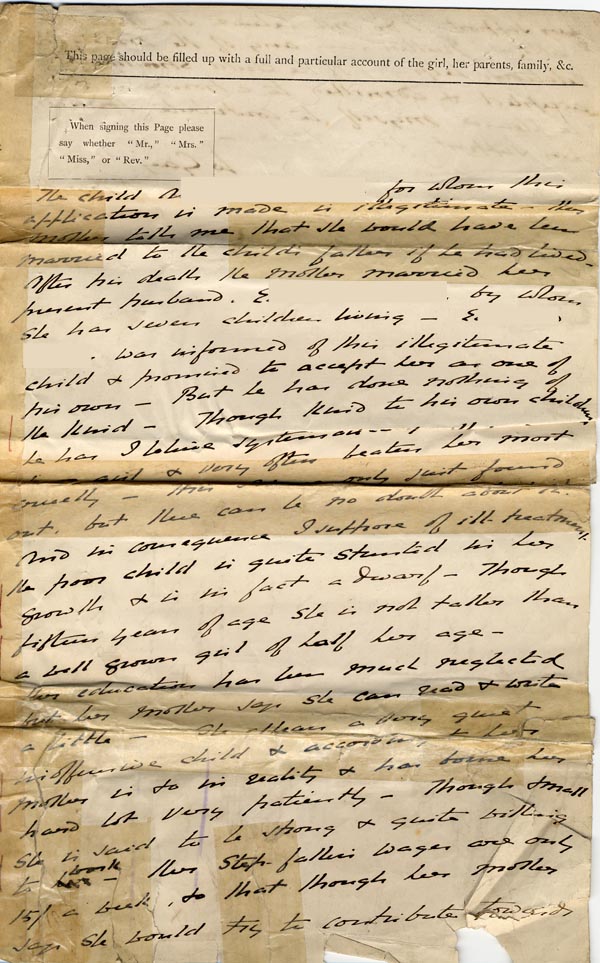 This page should be filled up with a full and particular account of the girl, her parents, family, &c.
When signing this Page please
say whether "Mr.," "Mrs."
"Miss," or "Rev."
The child for whom this
application is made is illegitimate - Her
mother tells me that she would have been
married to the child's father if he had lived -
After his death the mother married her
present husband. E. by whom
she has seven children living - E.
was informed of this illegitimate
child & promised to accept her as one of
his own - But he has done nothing of
the kind - Though kind to his own children
he has I believe
& very often beaten her most
cruelly - only just found
out, but there can be no doubt about it.
And in consequence I suppose of ill treatment
the poor child is quite stunted in her
growth & is in fact a dwarf - Though
fifteen years of age she is not taller than
a well grown girl of half her age -
Her education has been much neglected
but her mother says she can read & write
a little - She a very quiet
inoffensive child & according to her
mother is so in reality & has borne her
hard lot very patiently - Though small
she is said to be strong & quite willing
to work - Her Step father's wages are only
15/ a week, so that though her mother
says she would try to contribute towards